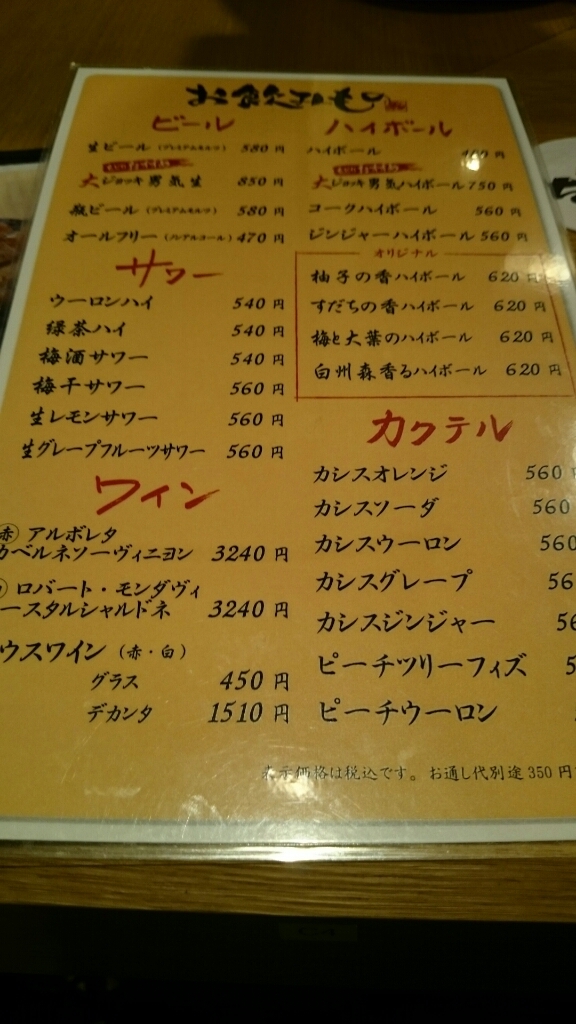 お飲みもの
ビール
生ビール (プレミアムモルツ) 580 円
大ジョッキ男気生 850 円
瓶ビール (プレミアムモルツ) 580 円
オールフリー (ノンアルコール) 470 円
サワー
ウーロンハイ 540 円
緑茶ハイ 540 円
梅酒サワー 540 円
梅干サワー 560 円
生レモンサワー 560 円
生グレープフルーツサワー 560 円
ワイン
赤 アルボレタ
カベルネソーヴィニヨン 3240 円
ロバート・モンダヴィ
ースタルシャルドネ 3240 円
ウスワイン (赤・白)
グラス 450 円
デカンタ 1510 円
ハイボール
ハイボール 円
大ジョッキ男気ハイボール 750 円
コークハイボール 560 円
ジンジャーハイボール 560 円
オリジナル
柚子の香ハイボール 620 円
すだちの香ハイボール 620 円
梅と大葉のハイボール 620 円
白州森香るハイボール 620 円
カクテル
カシスオレンジ 560 円
カシスソーダ 560
カシスウーロン 560
カシスグレープ 56
カシスジンジャー 56
ピーチツリーフィズ 5
ピーチウーロン
表示価格は税込です。お通し代別途 350 円